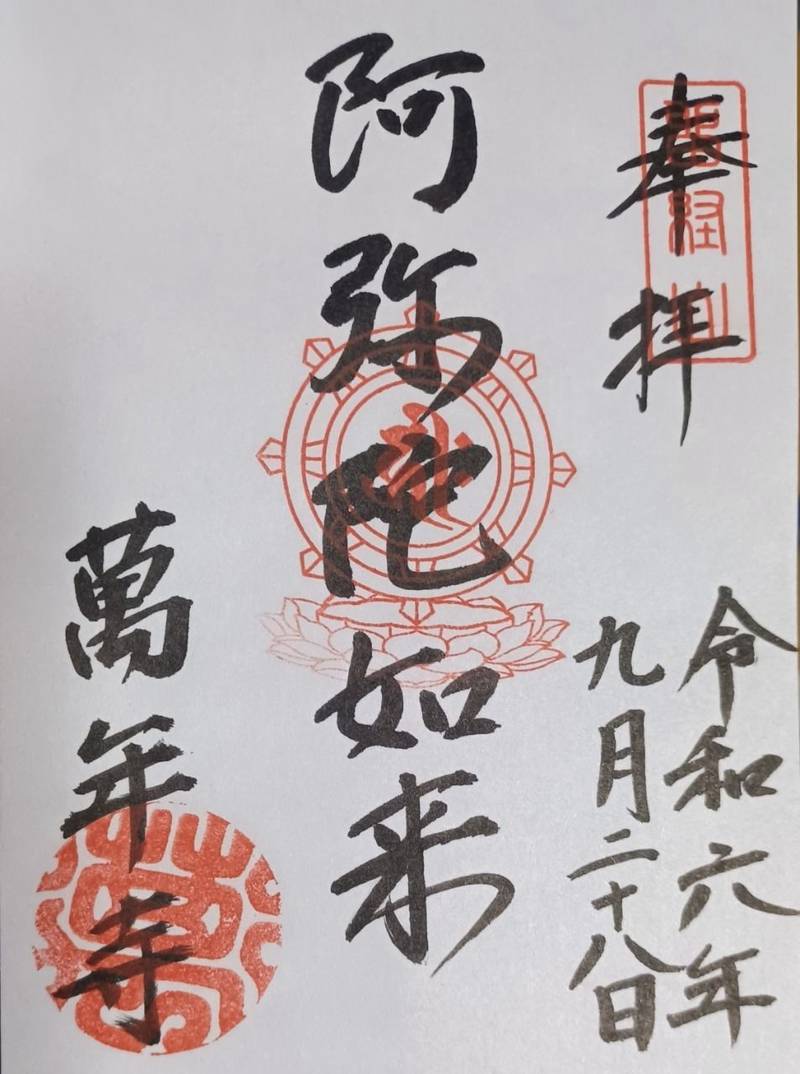 奉拝
令和六年
九月二十八日
阿弥陀如来
萬年寺